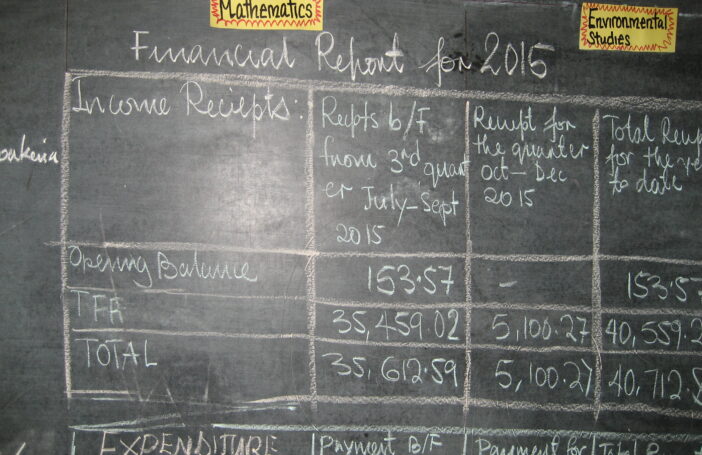 Mathematics
Environmental
Studies
Financial Report for 2015
Income Reciepts:
Recipts b/f
from 3rd quart
er July-Sept
2015
Receipt for
the quarter
Oct-Dec
2015
Total
for the
to date
Opening Balance 153.57 - 153.57
35,459.02 5,100.27 40,559.2
TOTAL 35,612.59 5,100.27 40,712.8
EXPENDITURE Payment B/F Payment for